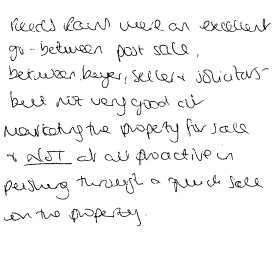 Reeds Rains were an excellent
go-between post sale,
between buyer, seller & solicitors -
but not very good at
marketing the property for sale
& NOT at all proactive in
pushing through a quick sale
on the property.